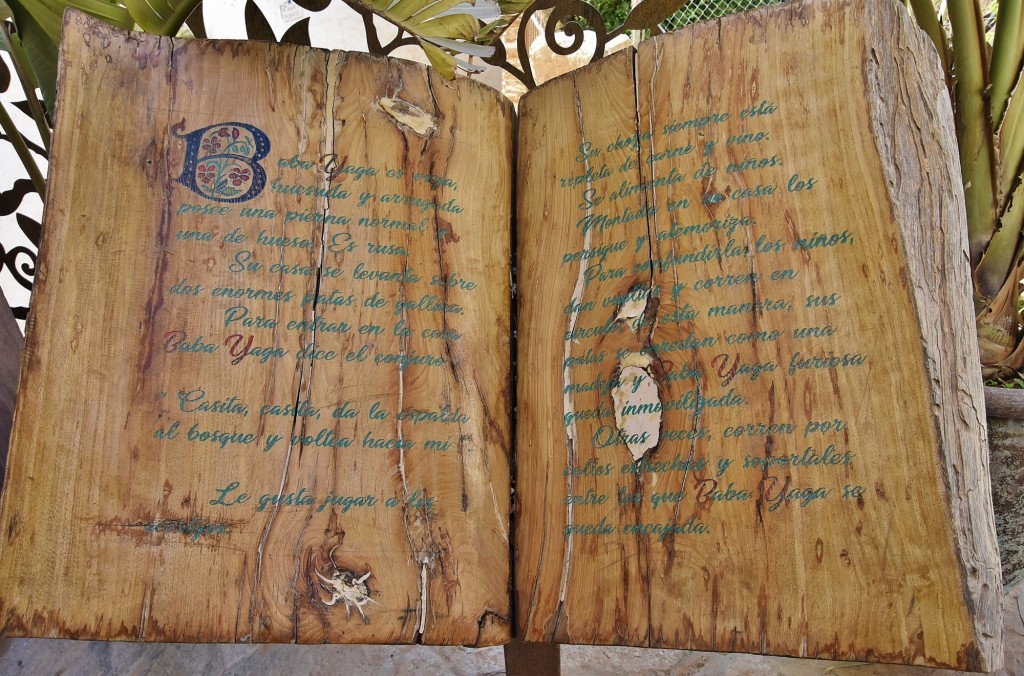 Baba Yaga es vieja,
huesuda y arrugada
posee una pierna normal y
una de hueso. Es rusa.
Su casa se levanta sobre
dos enormes patas de gallina.
Para entrar en la casa
Baba Yaga dice el conjuro
" Casita, casita, da la espalda
al bosque y voltea hacia mi
Le gusta jugar a los
acertijos.
Su choza siempre está
repleta de carne y vino.
Se alimenta de niños.
Montada en su casa los
persigue y atemoriza.
Para confundirlas los niños,
dan vueltas y corren en
círculo de esta manera, sus
patas se enrestan como una
madeja y Baba Yaga furiosa
queda inmovilizada.
Otras veces, corren por
calles estrechas y soportales
entre los que Baba Yaga se
queda encajada.